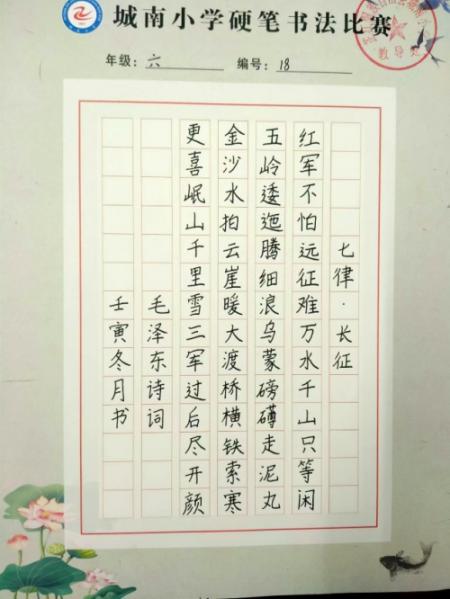 城南小学硬笔书法比赛
年级：六 编号：18
七律·长征
红军不怕远征难万水千山只等闲
五岭逶迤腾细浪乌蒙磅礴走泥丸
金沙水拍云崖暖大渡桥横铁索寒
更喜岷山千里雪三军过后尽开颜
毛泽东诗词
壬寅冬月书
教导处